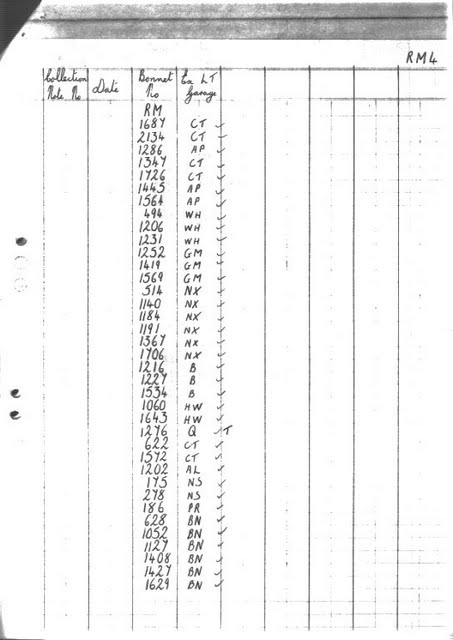 RM4
Collection Note No Date Bonnet No Ex LT Garage
RM
1687 CT ✓
2134 CT ✓
1286 AP ✓
1347 CT ✓
1726 CT ✓
1445 AP ✓
1564 AP ✓
494 WH ✓
1206 WH ✓
1231 WH ✓
1252 GM ✓
1419 GM ✓
1569 GM ✓
514 NX ✓
1140 NX ✓
1184 NX ✓
1191 NX ✓
1367 NX ✓
1706 NX ✓
1216 B ✓
1227 B ✓
1534 B ✓
1060 HW ✓
1643 HW ✓
1276 Q ✓ T
622 CT ✓
1572 CT ✓
1202 AL ✓
175 NS ✓
278 NS ✓
186 PR ✓
628 BN ✓
1052 BN ✓
1127 BN ✓
1408 BN ✓
1427 BN ✓
1629 BN ✓